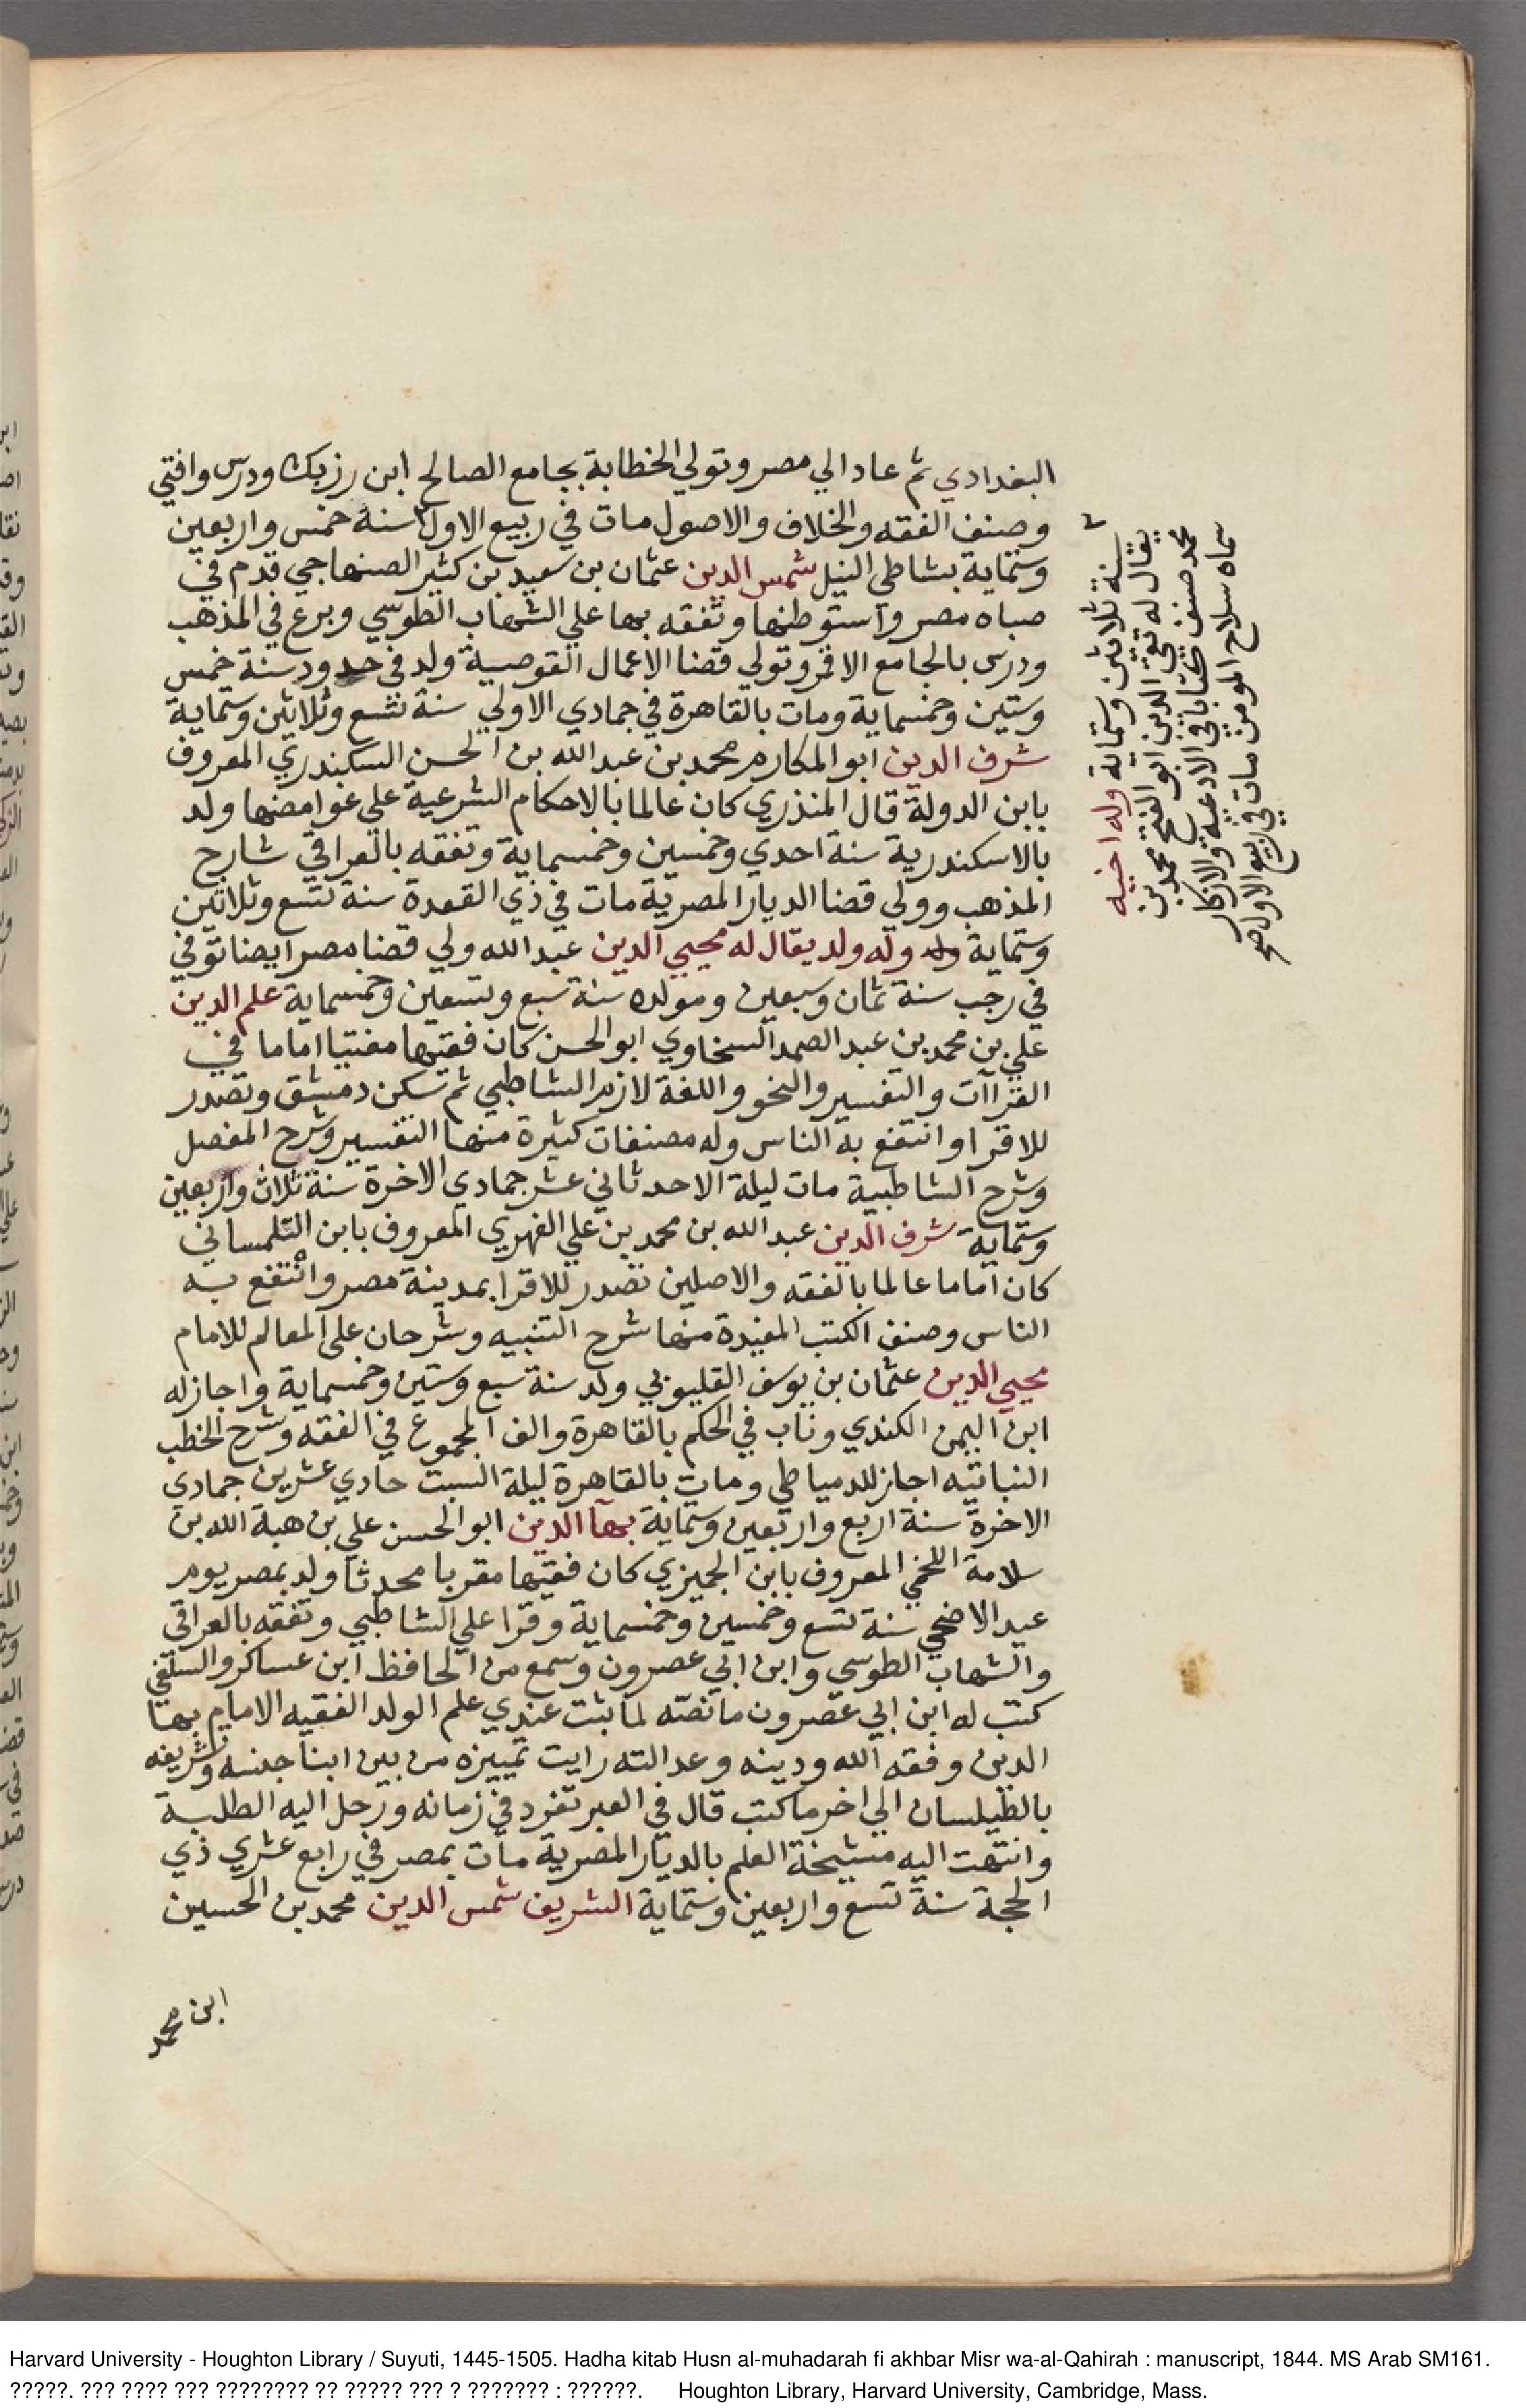 البغدادي ثم عاد الي مصر وتولي الخطابة بجامع الصالح ابن رزيك ودرس وافتي
وصنف الفقه والخلاف والاصول مات في ربيع الاول سنة خمس واربعين
وستماية بشاطي النيل شمس الدين عثمان بن سعيد بن كثير الصنهاجي قدم في
صباه مصر واستوطنها وتفقه بها علي الشهاب الطوسي وبرع في المذهب
ودرس بالجامع الاقمر وتولي قضا الاعمال القوصية ولد في حدود سنة خمس
وستين وخمسماية ومات بالقاهرة في جمادي الاولي سنة تسع وثلاثين وستماية
شرف الدين ابو المكارم محمد بن عبد الله بن الحسن السكندري المعروف
بابن الدولة قال المنذري كان عالما بالاحكام الشرعية علي غوامضها ولد
بالاسكندرية سنة احدي وخمسين وخمسماية وتفقه بالعراقي شارح
المذهب وولي قضا الديار المصرية مات في ذي القعدة سنة تسع وثلاثين
وستماية وله وله ولد يقال له محيي الدين عبد الله ولي قضا مصر ايضا توفي
في رجب سنة ثمان وسبعين ومولده سنة سبع وتسعين وخمسماية علم الدين
علي بن محمد بن عبد الصمد السخاوي ابو الحسن كان فقيها مفتيا اماما في
القراآت والتفسير والنحو واللغة لازم الشاطبي ثم سكن دمشق وتصدر
للاقرا وانتفع به الناس وله مصنفات كثيرة منها التفسير وشرح المفصل
وشرح الشاطبية مات ليلة الاحد ثاني عشر جمادي الاخرة سنة ثلاث واربعين
وستماية شرف الدين عبد الله بن محمد بن علي الفهري المعروف بابن التلمساني
كان اماما عالما بالفقه والاصلين تصدر للاقرا بمدينة مصر وانتفع به
الناس وصنف الكتب المفيدة منها شرح التنبيه وشرحان علي المعالم للامام
محيي الدين عثمان بن يوسف القليوبي ولد سنة سبع وستين وخمسماية واجاز له
ابن اليمن الكندي وناب في الحكم بالقاهرة والف المجموع في الفقه وشرح الخطب
النباتيه اجاز للدمياطي ومات بالقاهرة ليلة السبت حادي عشرين جمادي
الاخرة سنة اربع واربعين وستماية بهآ الدين ابو الحسن علي بن هبة الله بن
سلامة اللخمي المعروف بابن الجميزي كان فقيها مقريا محدثا ولد بمصر يوم
عيد الاضحي سنة تسع وخمسين وخمسماية وقرا علي الشاطبي وتفقه بالعراقي
والشهاب الطوسي وابن ابي عصرون وسمع من الحافظ ابن عساكر والسلفي
كتب له ابن ابي عصرون ما نصه لما ثبت عندي علم الولد الفقيه الامام بها
الدين وفقه الله ودينه وعدالته رايت تمييزه من بين ابنا جنسه وتشريفه
بالطيلسان الي اخر ما كتب قال في العبر تفرد في زمانه ورحل اليه الطلبة
وانتهت اليه مشيخة العلم بالديار المصرية مات بمصر في رابع عشري ذي
الحجة سنة تسع واربعين وستماية الشريف شمس الدين محمد بن الحسين
ابن محمد
سنة ثلاثين وستماية وله اخ
يقال له تقي الدين ابو الفتح محمد بن
محمد صنف كتابا في الادعية والاذكار
سماه سلاح المومن مات في ربيع الاول صح
Harvard University - Houghton Library / Suyuti, 1445-1505. Hadha kitab Husn al-muhadarah fi akhbar Misr wa-al-Qahirah : manuscript, 1844. MS Arab SM161.
?????. ??? ???? ??? ???????? ?? ????? ??? ? ??????? : ??????. Houghton Library, Harvard University, Cambridge, Mass.